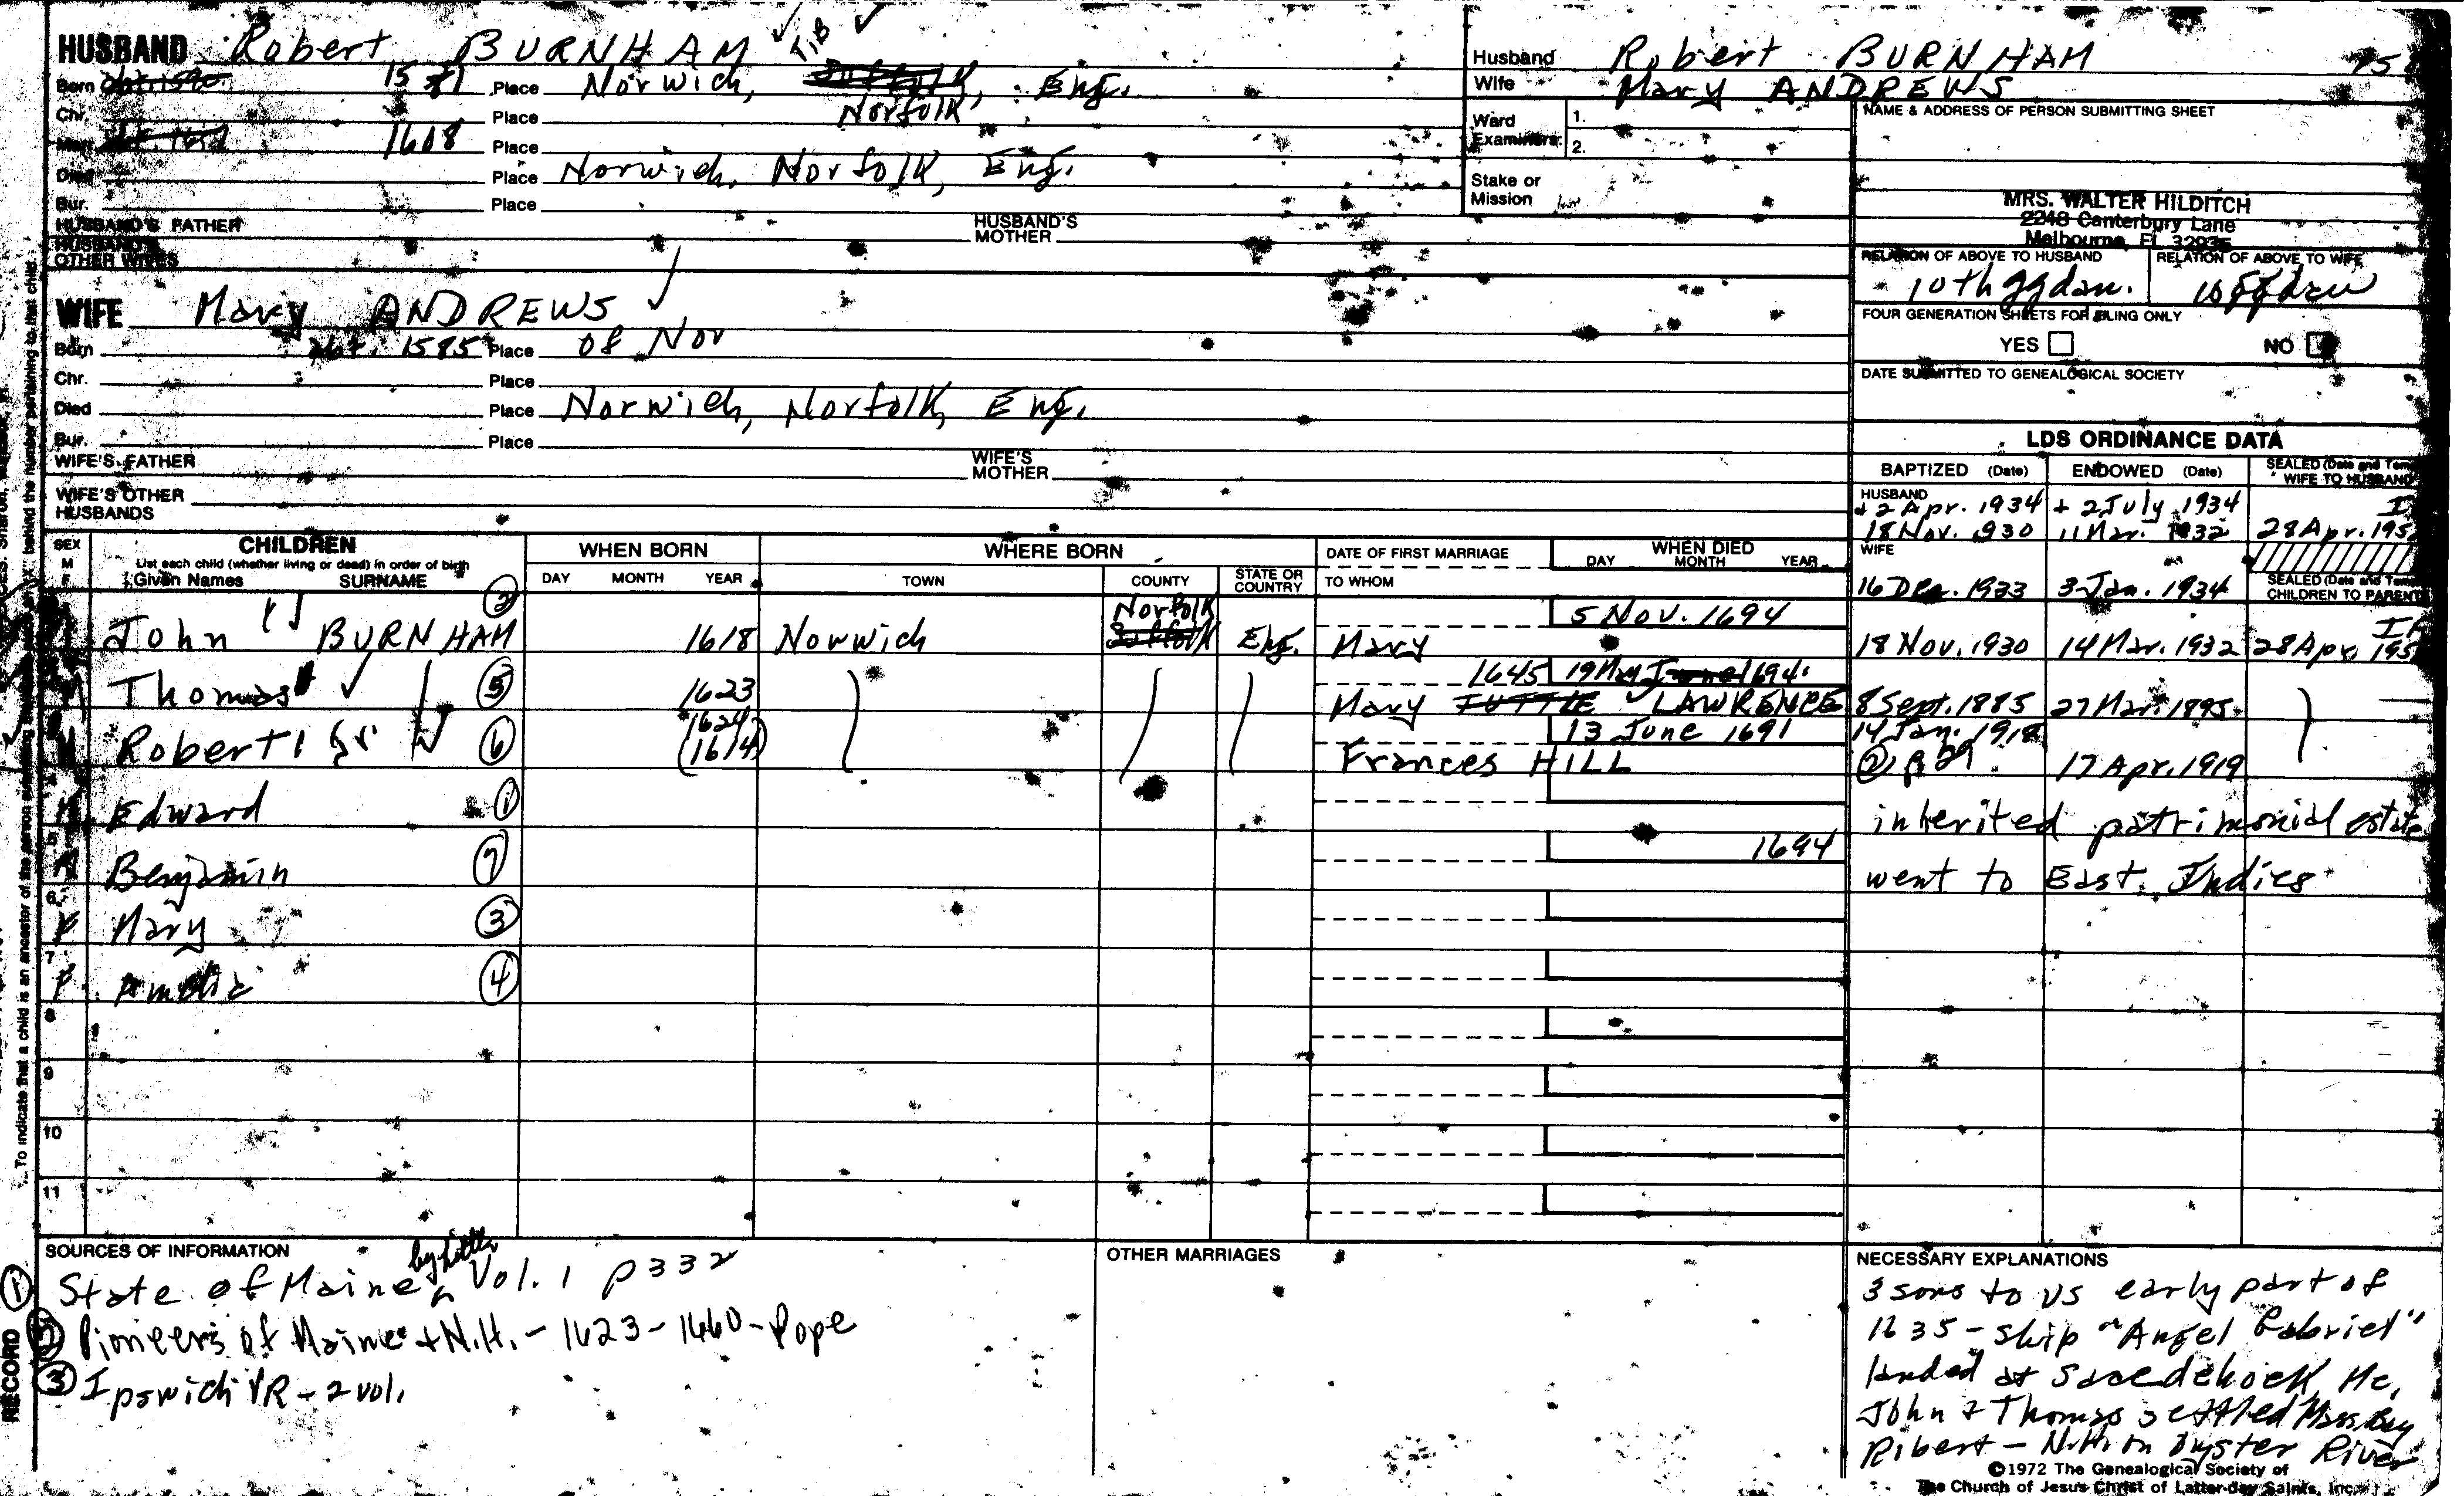 HUSBAND Robert BURNHAM
Born abt 1590 1581 Place Norwich, Suffolk, Eng.
Chr. Place Norfolk
Marr. 1608 Place
Died Place Norwich, Norfolk, Eng.
Bur. Place
HUSBAND'S FATHER HUSBAND'S MOTHER
HUSBAND'S OTHER WIVES
WIFE Mary ANDREWS
Born abt. 1585 Place of Nor
Chr. Place
Died Place Norwich, Norfolk, Eng.
Bur. Place
WIFE'S FATHER WIFE'S MOTHER
WIFE'S OTHER HUSBANDS
Husband Robert BURNHAM
Wife Mary ANDREWS
Ward Examiners: 1.
2.
Stake or Mission
NAME & ADDRESS OF PERSON SUBMITTING SHEET
MRS. WALTER HILDITCH
2248 Canterbury Lane
Melbourne, Fl 32935
RELATION OF ABOVE TO HUSBAND RELATION OF ABOVE TO WIFE
10th ggdau. 10ggdau
FOUR GENERATION SHEETS FOR FILING ONLY
YES NO
DATE SUBMITTED TO GENEALOGICAL SOCIETY
LDS ORDINANCE DATA
BAPTIZED (Date) ENDOWED (Date) SEALED (Date and Temp
WIFE TO HUSBAND
HUSBAND
+ 2 Apr. 1934 + 2 July 1934
18 Nov. 1930 11 Mar. 1932 28 Apr. 195
WIFE
16 Dec. 1933 3 Jan. 1934
SEALED (Date and Temp
CHILDREN TO PARENTS
SEX M F
CHILDREN
List each child (whether living or dead) in order of birth
Given Names SURNAME
WHEN BORN
DAY MONTH YEAR
WHERE BORN
TOWN COUNTY STATE OR COUNTRY
DATE OF FIRST MARRIAGE
TO WHOM
WHEN DIED
DAY MONTH YEAR
Norfolk 5 Nov. 1694
John BURNHAM 2 1618 Norwich Suffolk Eng. Mary 18 Nov. 1930 14 Mar. 1932 28 Apr. 195
1645 19 May June 1694
Thomas 5 1623 Mary TUTTLE LAWRENCE 8 Sept. 1885 27 Mar. 1895
1624 13 June 1691 14 Jan. 1918
Robert 6 (1614) Frances HILL 17 Apr. 1919
M Edward 1 inherited patrimonial estate
5 1694
M Benjamin 7 went to East Indies
6
F Mary 3
7
F Amelia 4
8
9
10
11
SOURCES OF INFORMATION
1 State of Maine by Little Vol. 1 p332
2 Pioneers of Maine + N.H. - 1623-1660 - Pope
3 Ipswich VR - 2 vol.
OTHER MARRIAGES
NECESSARY EXPLANATIONS
3 sons to US early part of
1635 - ship "Angel Gabriel"
landed at Me.
John & Thomas settled Mass Bay
Robert - N.H. on Oyster River
©1972 The Genealogical Society of
The Church of Jesus Christ of Latter-day Saints, Inc.
To indicate that a child is an ancestor of the person submitting behind the number pertaining to that child.
RECORD